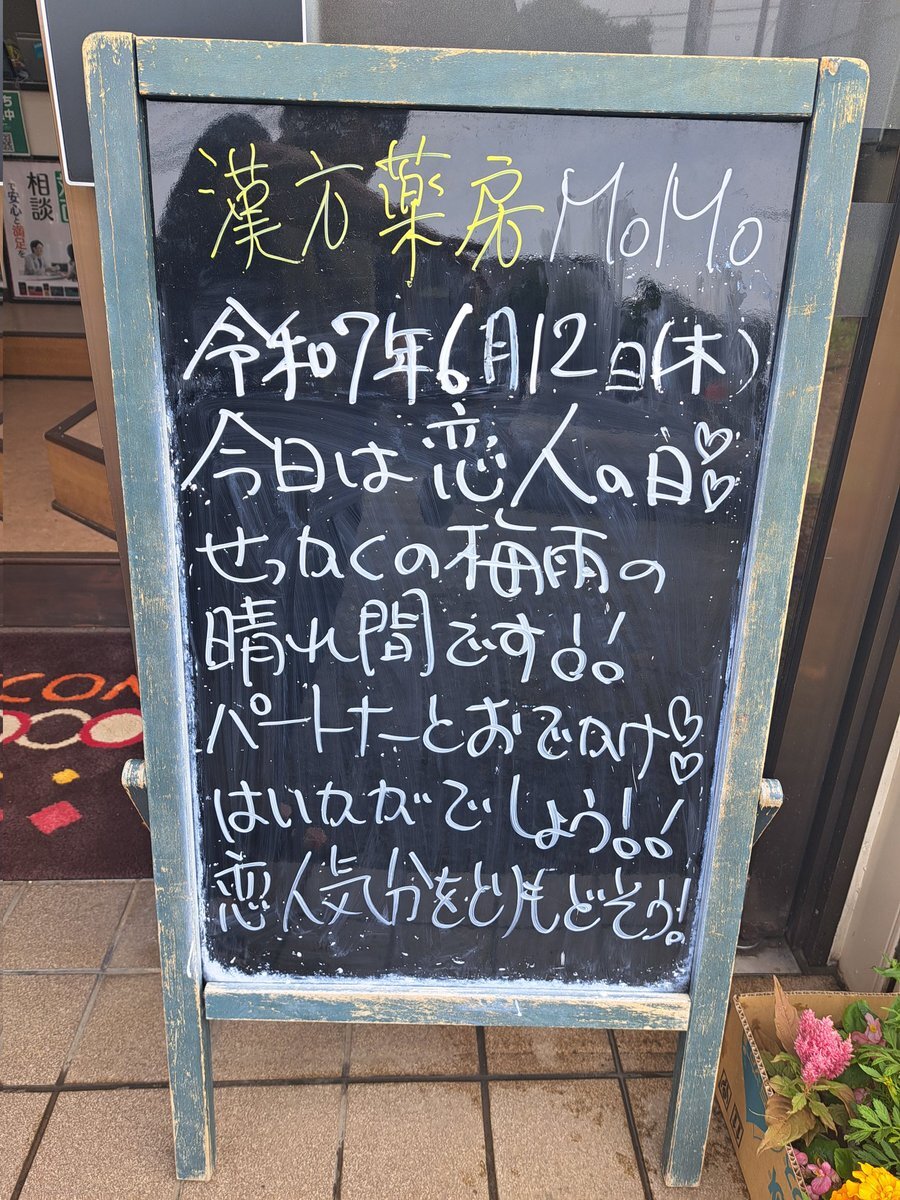 漢方薬房 MoMo
令和7年6月12日(木)
今日は恋人の日♡♡
せっかくの梅雨の
晴れ間です!!
パートナーとおでかけ♡♡
はいかがでしょう!!
恋人気分をとりもどそう!
相談
で安心と満足を
CON